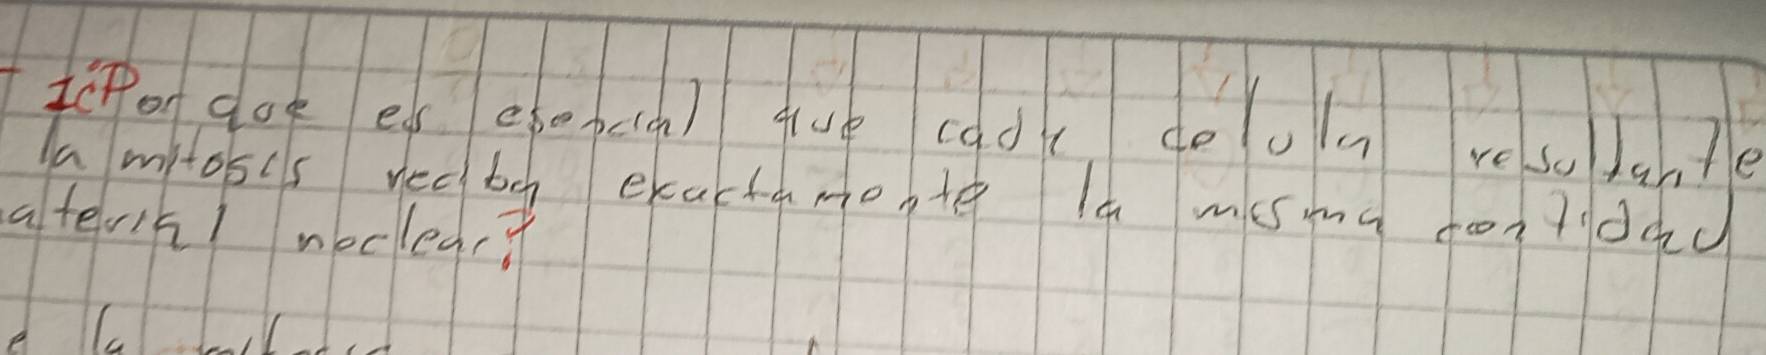 1¿Por que es esencial que cada celula resultante
la mitosis reciba exactamente la misma cantidad
aterial nuclear?
e la